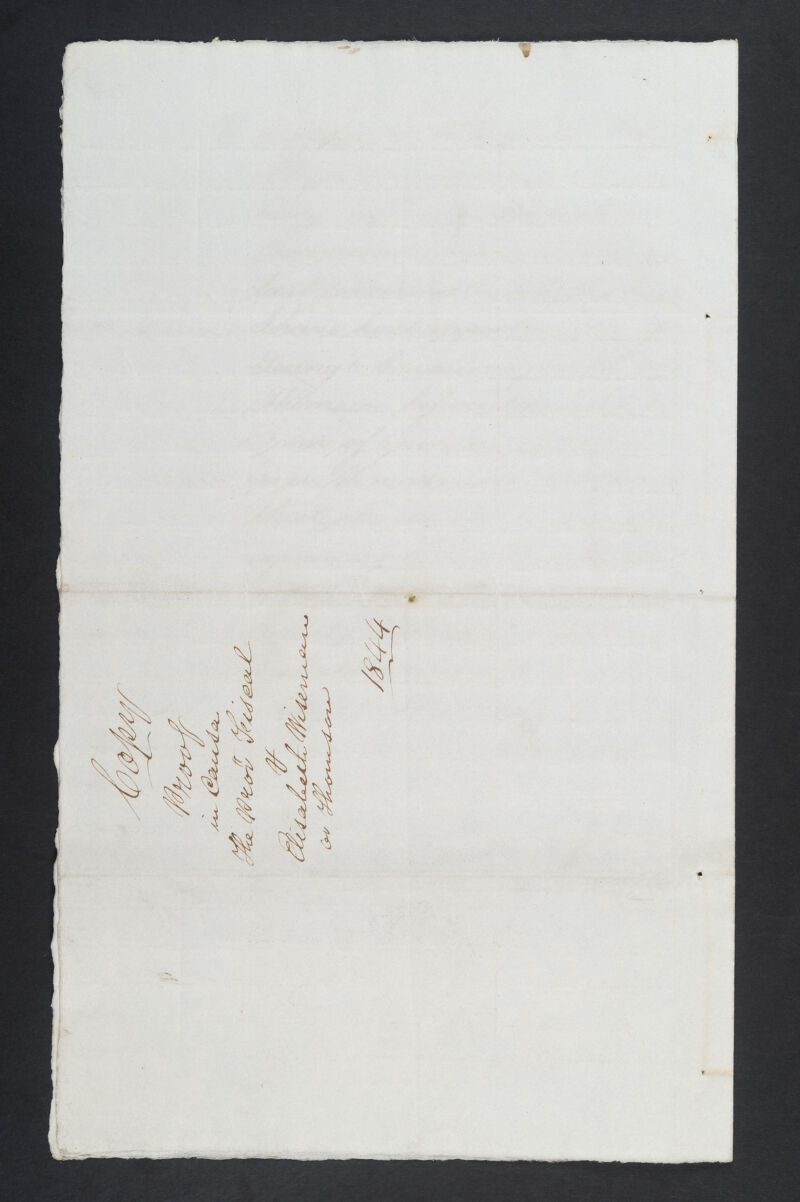 Copy
Proof
in Causa
The Pror Fiscal
v
Elisabeth Wiseman
or Thomson
1844